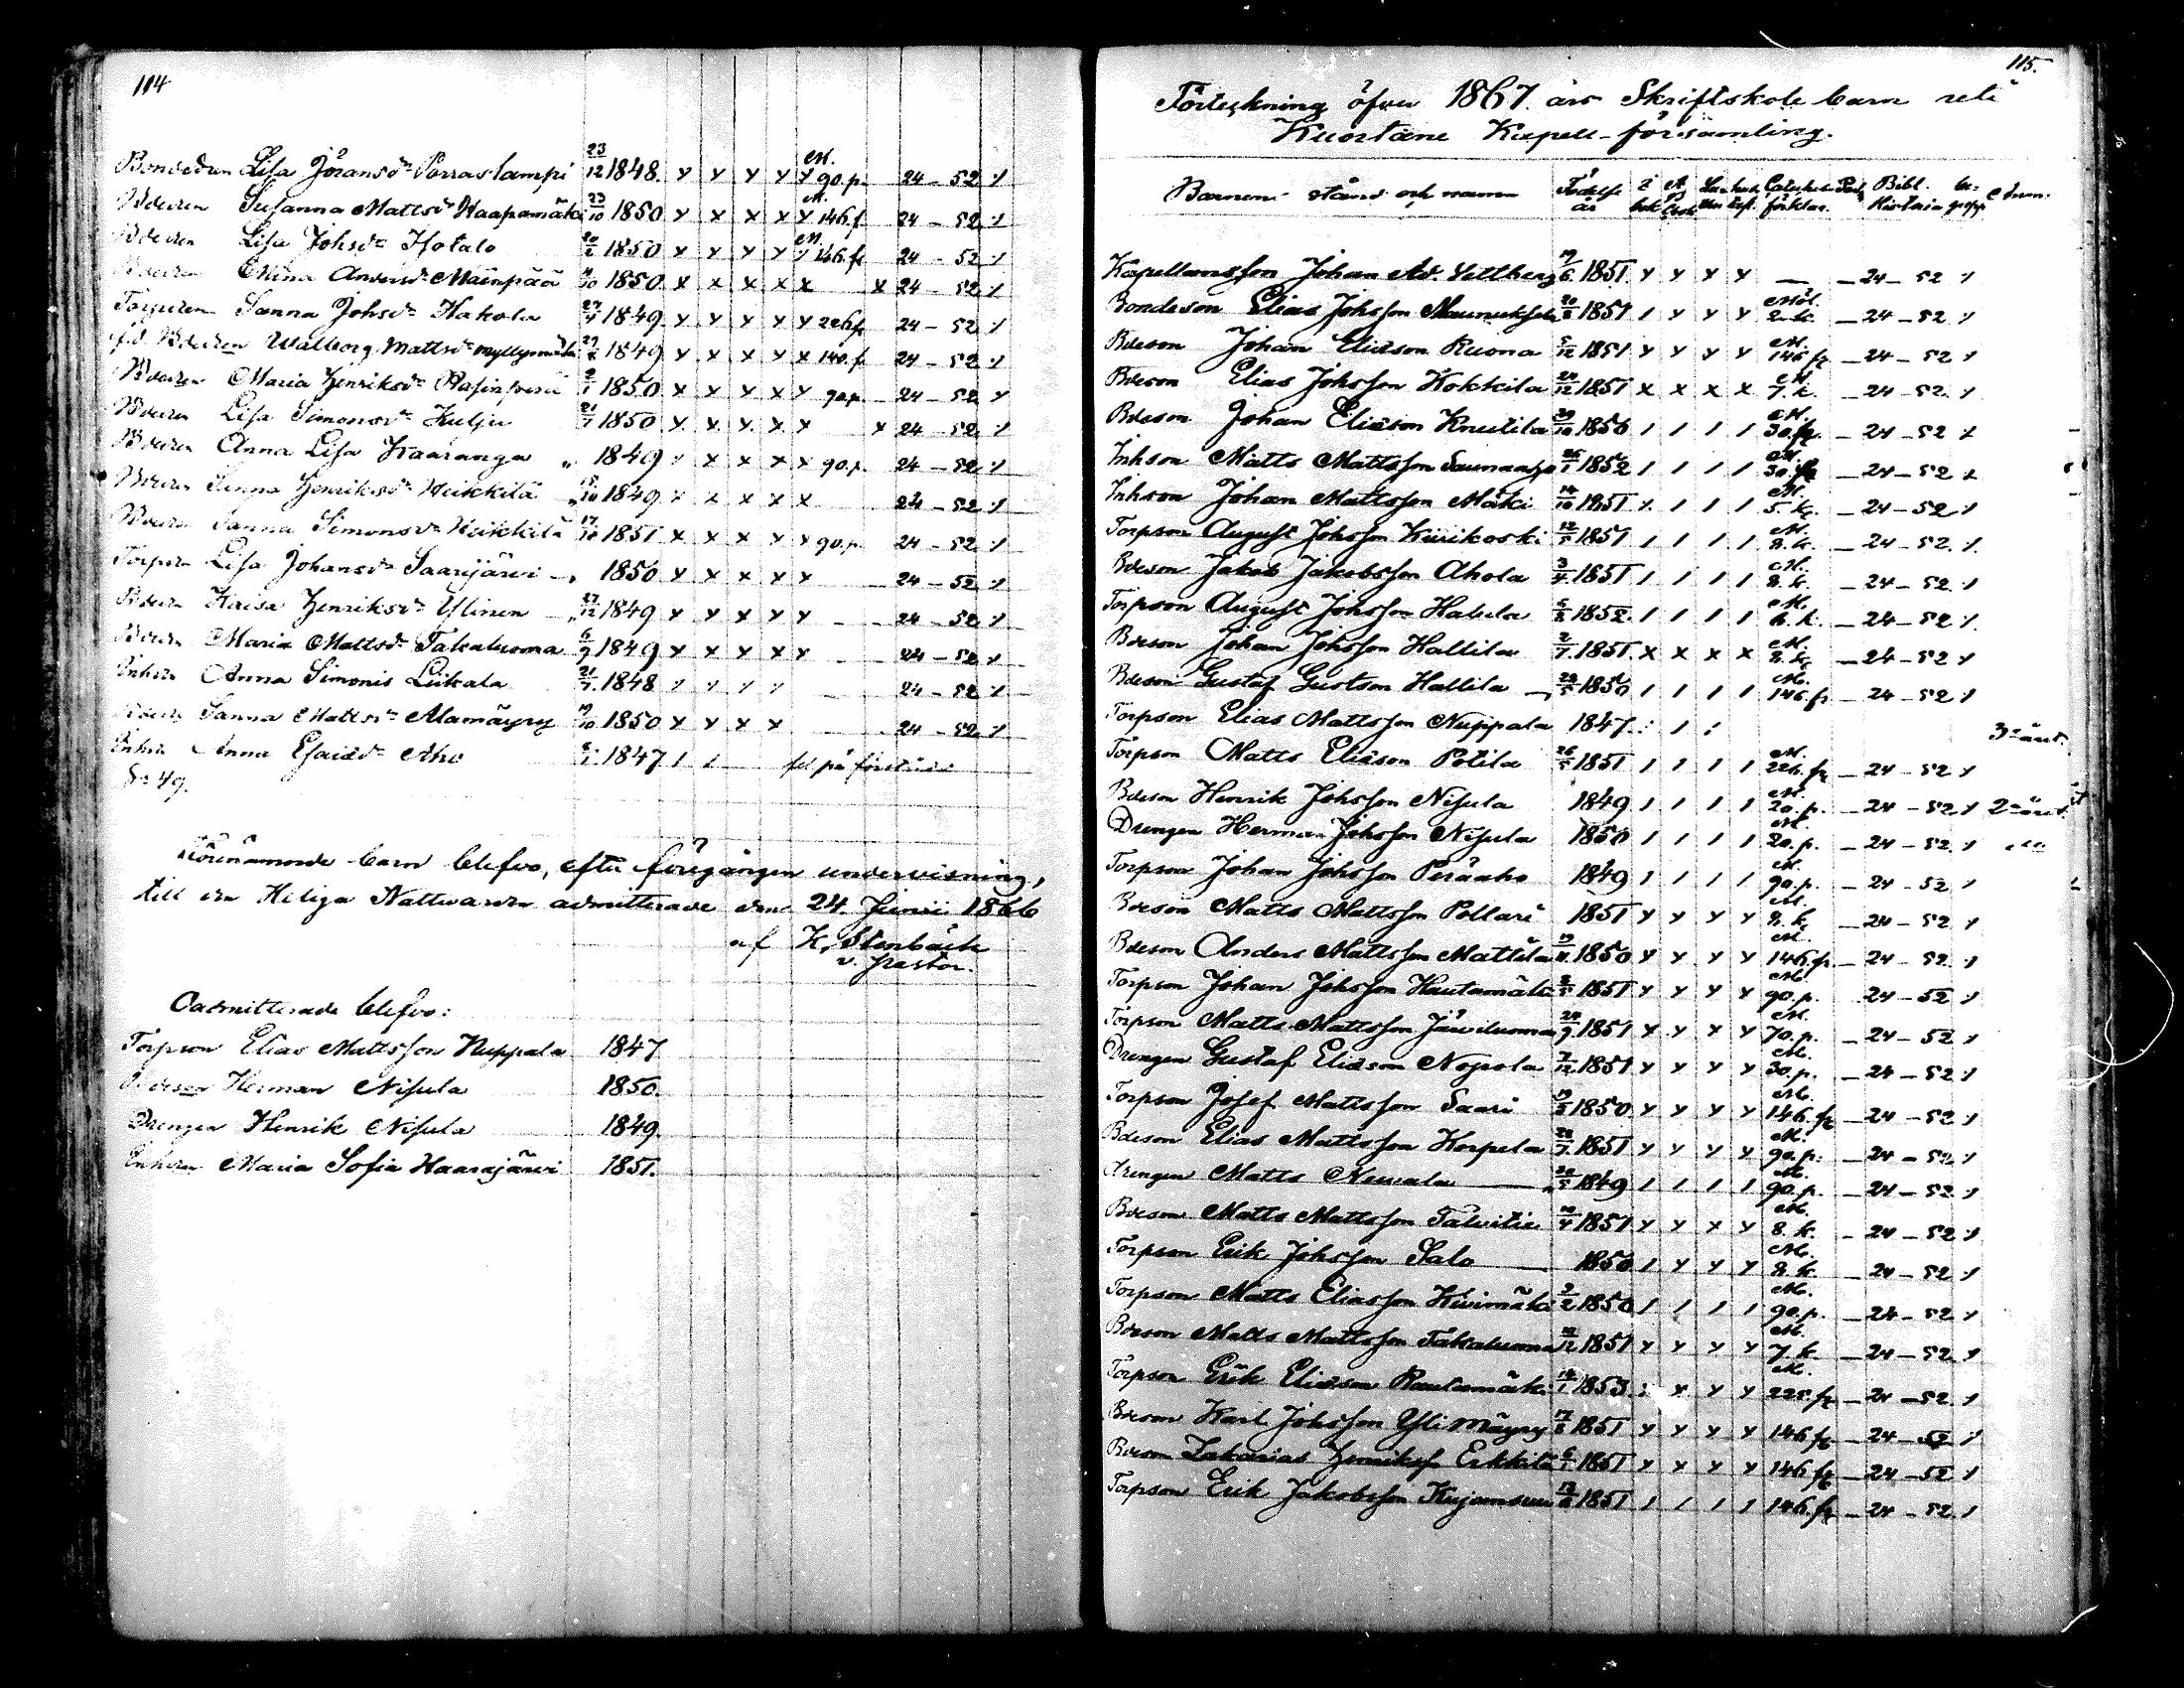 114
Bondedrn Lisa Jöransdr Porraslampi 23/12 1848. x x x x x M. 90.p. 24 - 52 x
Bdedrn Susanna Mattsdr Haapamäki 23/10 1850 x x x x x M. 146.f 24 - 52 x
Bdedrn Lisa Johsdr Isotalo 1850 x x x x x M. 146.f 24 - 52 x
Bdedrn Mina Andersdr Mäinpää 1850 x x x x x x 24 - 52 x
Torpdrn Sanna Johsdr Hakola 27/4 1849. x x x x x 226f 24 - 52 x
Bdedrn Walborg Mattsdr Myllymäki 1849 x x x x x 140.f 24 - 52 x
Bdedrn Maria Henriksdr 1850 x x x x x 90.p. 24 - 52 x
Bdedrn Lisa Simonsdr Kulju 21/7 1850 x x x x x x 24 - 52. x
Bdedrn Anna Lisa Kaaranga 1849 x x x x x 90.p. 24 - 52 x
Bdedrn Sanna Henriksdr Heikkilä 1849 x x x x x 24 - 52 x
Bdedrn Sanna Simonsdr Heikkilä 17/10 1851 x x x x x 90.p. 24 - 52 x
Torpdrn Lisa Johansdr Saarijärvi 1850 x x x x x 24 - 52 x
Bdedrn Kaisa Henriksdr Ylinen 27/12 1849 x x x x x 24 - 52 x
Bdedrn Maria Mattsdr Takaluoma 6/9 1849 x x x x x 24 - 52 x
Inhdrn Anna Simonis Liikala 21/7 1848 x x x x 24 - 52 x
Bdedrn Sanna Mattsdr Alamäyry 19/10 1850 x x x x 24 - 52 x
Inhdrn Anna Esaiædr Aho 1847 / / fel på förstånd
S:a 49.
Förenämnde barn blefvo, efter föregången undervisning,
till den Heliga Nattvarden admitterade den 24 Junii 1866
af K. Stenbäck
v. pastor.
Oadmitterade blefvo:
Torpson Elias Mattsson Nuppala 1847
Bdeson Herman Nisula 1850.
Drengen Henrik Nisula 1849.
Inhdrn Maria Sofia Haarajärvi 1851.
115.
Förteckning öfver 1867 års Skriftskole barn uti
Kuortane Kapell-församling.
Barnens stånd och namn Födelse år i bok A Bok förklar. Bibl. Historia
Kapellansson Johan Ad. Vellberg 19/6 1851 x x x x — — 24 - 52 x
Bondeson Elias Johsson Maunuksela 20/8 1851 / x x x 2 k. — 24 - 52 x
Bdeson Johan Eliæson Ruona 5/12 1851 x x x x M. 146 fr — 24 - 52 x
Bdeson Elias Johsson Kokkila 24/12 1851 x x x x M. 7. k. — 24 - 52. x
Bdeson Johan Eliæson Knuutila 29/10 1850 / / / / M. 30.fr. — 24 - 52 x
Inhson Matts Mattsson 1852 / / / / M. 30.fr — 24 - 52 x
Inhson Johan Mattsson Mäki 14/10 1851 x / / / M. 5. k. — 24 - 52 x
Torpson August Johsson Kiirikoski 12/5 1851 / / / / M. 8. k. — 24 - 52. x
Bdeson Jakob Jakobsson Ahola 3/4 1851 / / / / M. 8. k. — 24 - 52. x
Torpson August Johsson Hakula 5/8 1852. / / / / M. 6. k. — 24 - 52 x
Bdeson Johan Johsson Hallila 2/7 1851. x x x x M. 8. k. — 24 - 52 x
Bdeson Gustaf Gustson Hallila 28/5 1850 / / / / M. 146.fr — 24 - 52 x
Torpson Elias Mattsson Nuppala 1847. : / : 3:e året.
Torpson Matts Eliæson Potila 26/5 1851 / / / / M. 226.fr — 24 - 52 x
Bdeson Henrik Johsson Nisula 1849 / / / / M. 20.p. — 24 - 52 x 2:a året
Drengen Herman Johsson Nisula 1850 / / / / M. 20.p. — 24 - 52. x
Torpson Johan Johsson Peräaho 1849 / / / / M. 90.p. — 24 - 52 x
Bdeson Matts Mattsson Pollari 1851 x x x x M. 8. k. — 24 - 52. x
Bdeson Anders Mattsson Mattila 1850 x x x x M. 146.fr — 24 - 52. x
Torpson Johan Johsson Hautamäki 1851 x x x x M. 90.p. 24 - 52 x
Torpson Matts Mattsson Järviluoma 24/9 1851 x x x x M. 70.p. — 24 - 52 x
Drengen Gustaf Eliæson Nopola 7/12 1851 x x x x M. 30.p. — 24 - 52 x
Torpson Josef Mattsson Saari 1850 x x x x M. 146.fr — 24 - 52 x
Bdeson Elias Mattsson Korpela 28/7 1851 x x x x M. 90.p. — 24 - 52 x
drengen Matts 1849 / / / / M. 90.p. — 24 - 52. x
Bdeson Matts Mattsson Talvitie 1851 x x x x M. 8. k. — 24 - 52 x
Torpson Erik Johsson Salo 1850 / x x x M. 8. k. — 24 - 52 x
Torpson Matts Eliasson Kivimäki 2/2 1850 / / / / M. 90.p. — 24 - 52 x
Bdeson Matts Mattsson Takaluoma 1851 x x x x M. 7. k. — 24 - 52. x
Torpson Erik Eliæson Rautamäki 1853 : x x x M. 225.fr — 24 - 52. x
Bdeson Karl Johsson Ylimäyry 1851 x x x x 146.fr — 24 - 52 x
Bdeson Zakarias Henriksf Erkkilä 6/7 1851 x x x x 146.fr — 24 - 52 x
Torpson Erik Jakobsson Kujansuu 1851 / / / / 146.fr — 24 - 52. x